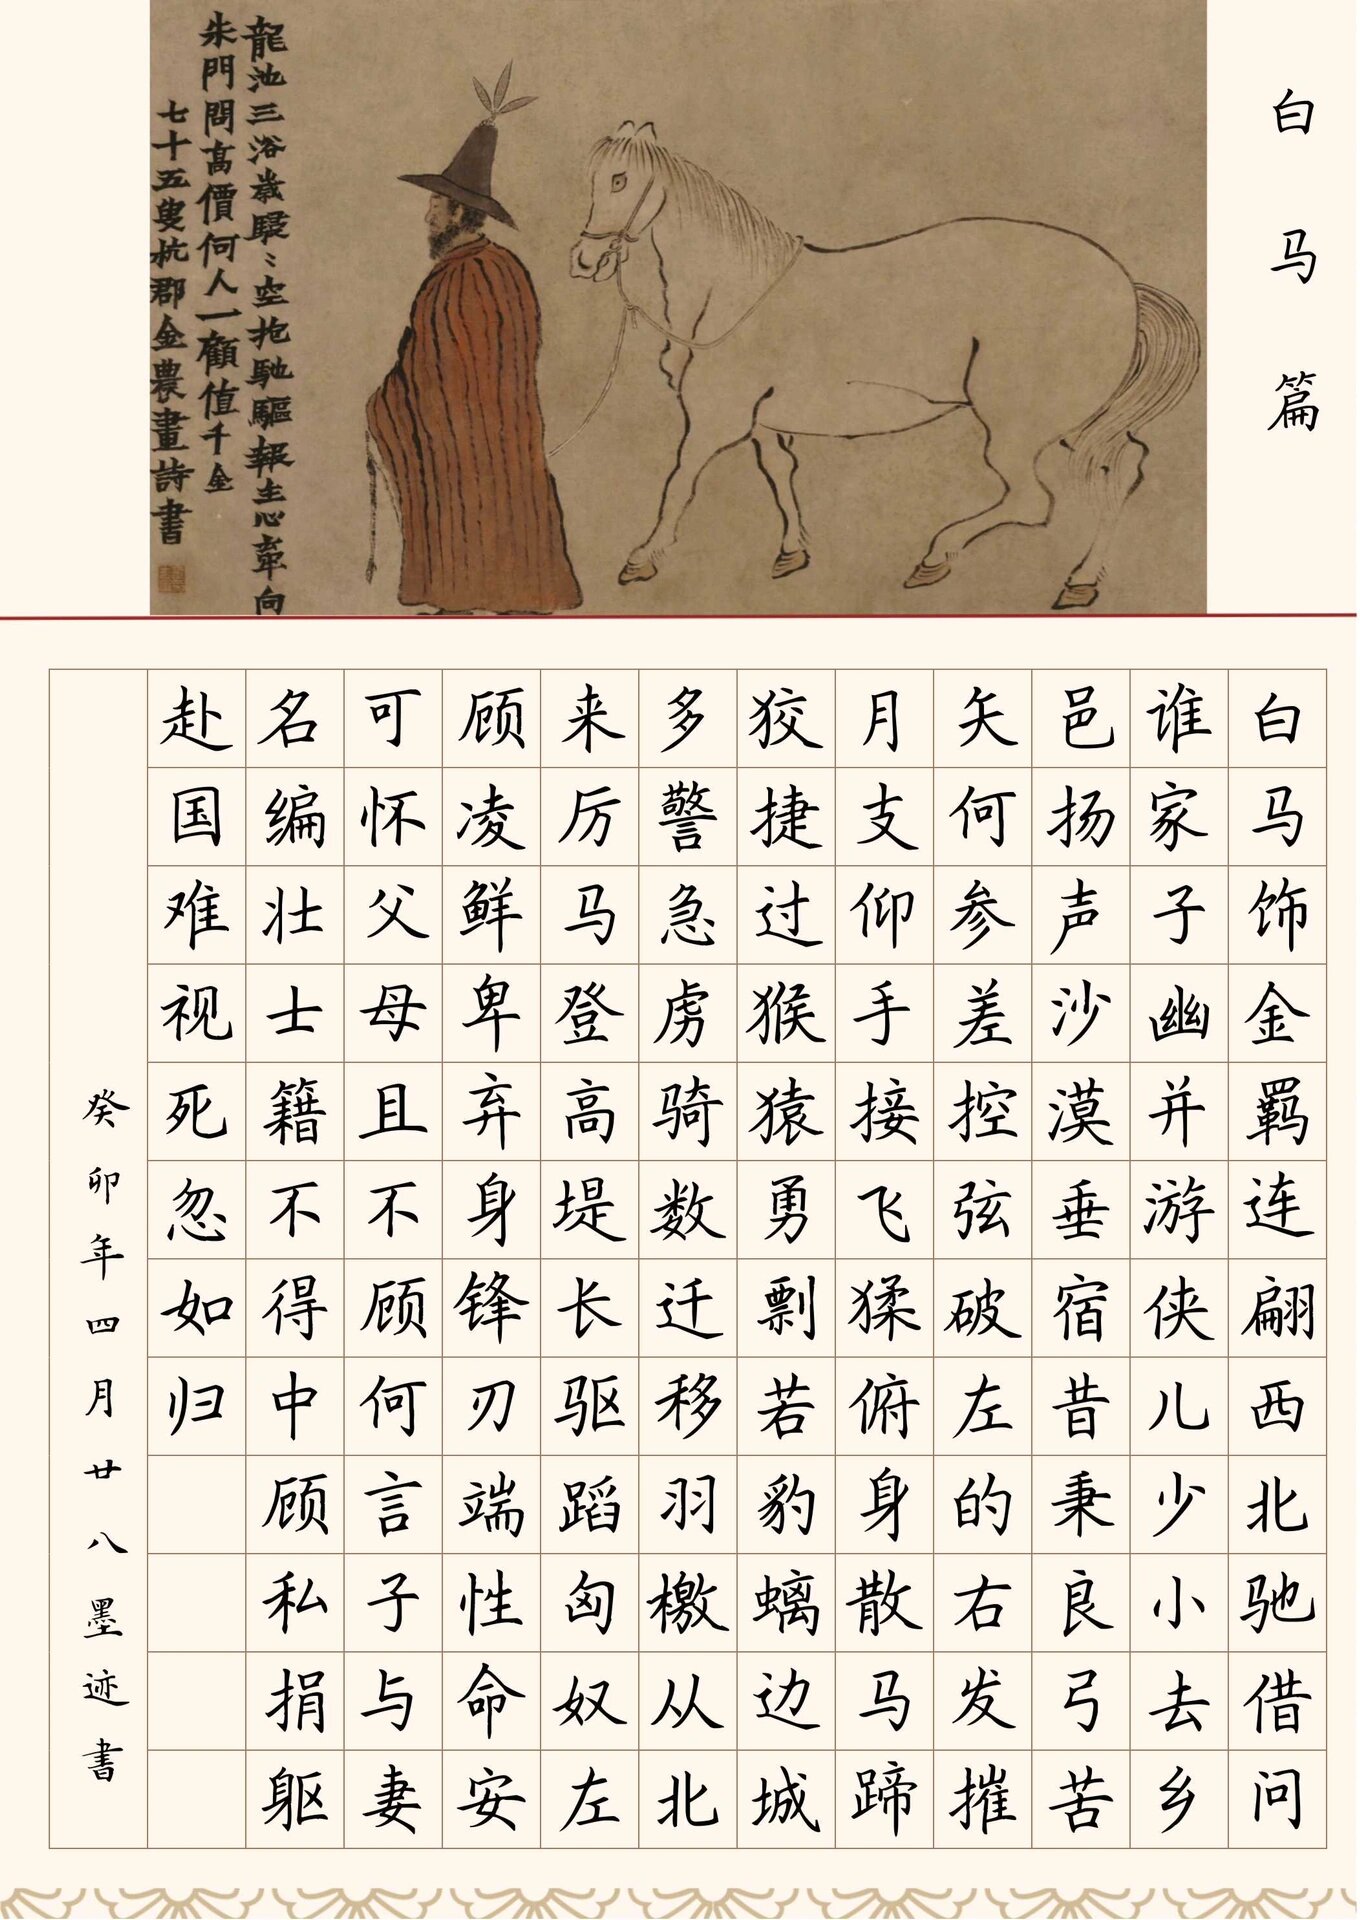 白马篇
龍池三浴歲駸〻空抱馳驅報主心牽向
朱門問高價何人一顧值千金
七十五叟杭郡金農畫詩書
白马饰金羁连翩西北驰借问
谁家子幽并游侠儿少小去乡
邑扬声沙漠垂宿昔秉良弓苦
矢何参差控弦破左的右发摧
月支仰手接飞猱俯身散马蹄
狡捷过猴猿勇剽若豹螭边城
多警急虏骑数迁移羽檄从北
来厉马登高堤长驱蹈匈奴左
顾凌鲜卑弃身锋刃端性命安
可怀父母且不顾何言子与妻
名编壮士籍不得中顾私捐躯
赴国难视死忽如归
癸卯年四月廿八墨迹書